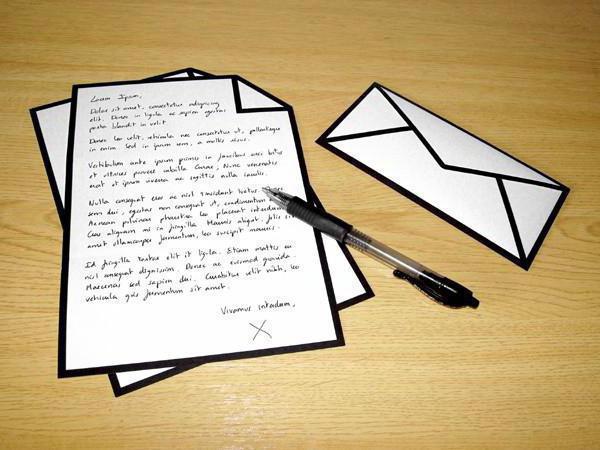 Lorem Ipsum,
Dolor sit amet, consectetur adipiscing
elit. Donec in ligula ac sapien egestas
porta blandit in velit.
Donec leo velit, vehicula nec consectetur ut, pellentesque
in enim. Sed in ipsum sem, a mollis risus.
Vestibulum ante ipsum primis in faucibus orci luctus
et ultrices posuere cubilia Curae; Nunc venenatis
erat ut ipsum viverra ac sagittis nulla iaculis.
Nulla consequat eros ac nisl tincidunt
sem dui, egestas non consequat ut, condimentum
Aenean pulvinar pharetra leo placerat interdum.
Cras aliquam mi in fringilla. Mauris aliquet felis sit
amet ullamcorper fermentum, leo suscipit mauris.
Id fringilla tortor elit it ligula. Etiam mattis eu
nisl consequat dignissim. Donec ac euismod gravida.
Maecenas sed sapien dui. Curabitur velit nibh, leo
vehicula quis fermentum sit amet.
Vivamus interdum,
X